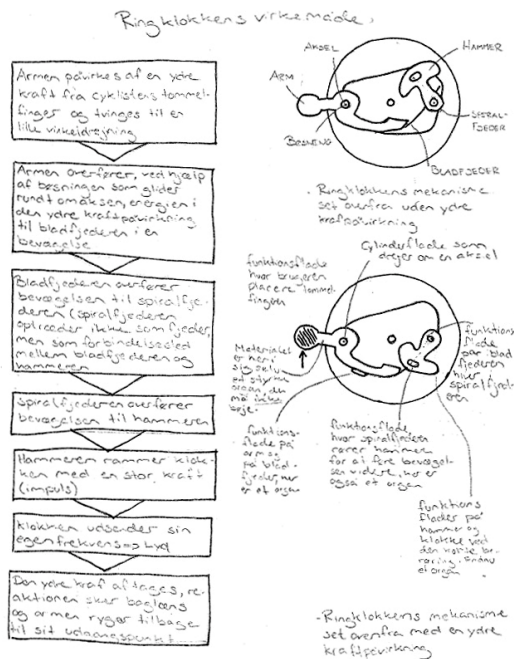 Ringklokkens virkemåde.
Armen påvirkes af en ydre
kraft fra cyklistens tommel-
finger og tvinges til en
lille vinkeldrejning
Armen overfører, ved hjælp
af bøsningen som glider
rundt om aksen, energien i
den ydre kraftpåvirkning
til bladfjederen i en
bevægelse
Bladfjederen overfører
bevægelsen til spiralfje-
deren (spiralfjederen
optræder ikke som fjeder,
men som forbindelsesled
mellem bladfjederen og
hammeren
Spiralfjederen overfører
bevægelsen til hammeren
Hammeren rammer klok-
ken med en stor kraft
(impuls)
Klokken udsender sin
egenfrekvens => Lyd
Den ydre kraf aftages, re-
aktionen sker baglæns
og armen ryger tilbage
til sit udgangspunkt
AKSEL
HAMMER
ARM
SPIRAL-
FJEDER
BØSNING
BLADFJEDER
- Ringklokkens mekanisme
set overfra uden ydre
kraftpåvirkning
Cylinderflade som
drejer om en aksel
funktionsflade
hvor brugeren
placere tommel-
fingeren
Materialet
er her i
sig selv
et styrke
organ da
må ikke
bøje.
funktions
flade
på blad
fjederen
spiralfjed-
eren
funktions-
flade på
arm og
på blad-
fjeder, her
er et organ
funktionsflade,
hvor spiralfjederen
rører hammeren
for at føre bevægel-
sen videre, her er
også et organ
funktions
flader på
hammer og
klokke ved
den korte be-
røring. Endnu
et organ
- Ringklokkens mekanisme
set ovenfra med en ydre
kraftpåvirkning